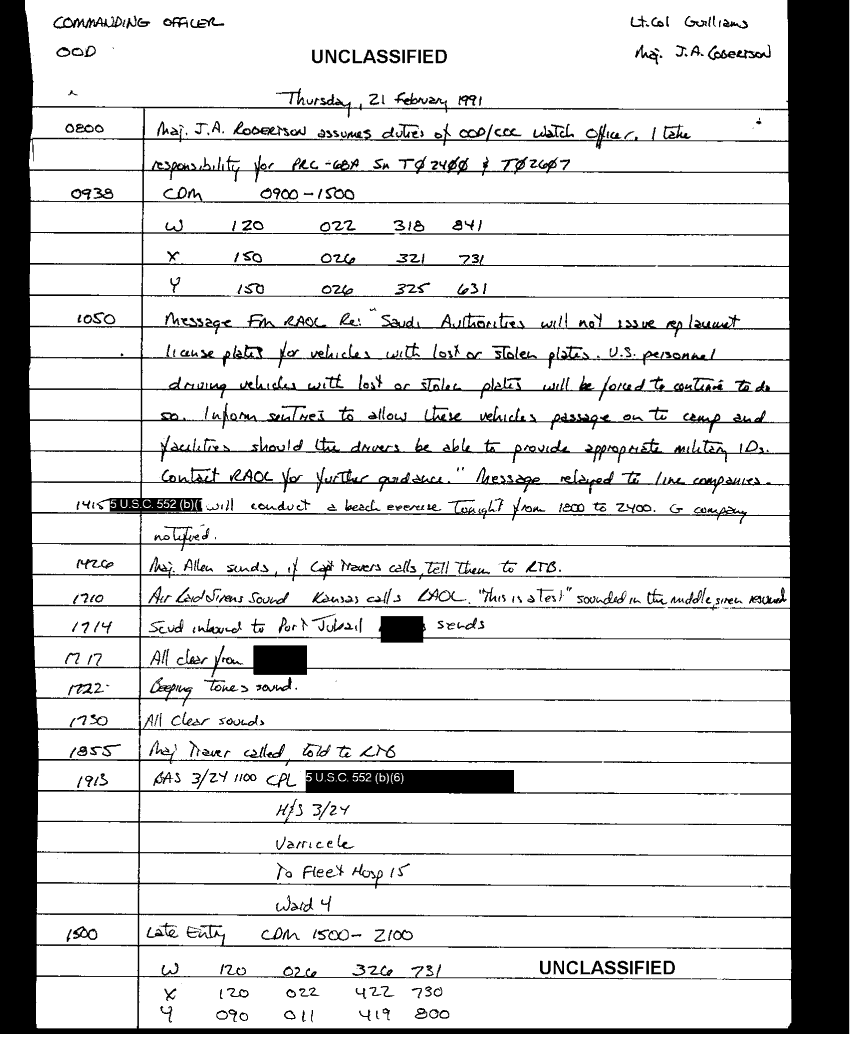 COMMANDING OFFICER Lt.Col Guilliams
OOD UNCLASSIFIED Maj. J.A. Roberson
Thursday, 21 February 1991
0800 Maj. J.A. ROBERSON assumes duties of OOD/COC Watch Officer. I take
responsibility for PRC-68A Sn TØ24ØØ & TØ26Ø7
0938 CDM 0900-1500
W 120 022 318 841
X 150 026 321 731
Y 150 026 325 631
1050 Message Fm RAOC Re: "Saudi Authorities will not issue replacement
license plates for vehicles with lost or stolen plates. U.S. personnel
driving vehicles with lost or stolen plates will be forced to continue to do
so. Inform sentries to allow these vehicles passage on to camp and
facilities should the drivers be able to provide appropriate military IDs.
Contact RAOC for further guidance." Message relayed to line companies.
1415 5 U.S.C. 552 (b)( will conduct a beach exercise Tonight from 1800 to 2400. G company
notified.
1426 Maj. Allen sends, if Capt Travers calls, tell them to RTB.
1710 Air Raid Sirens Sound Kansas calls RAOC. "This is a test" sounded in the middle, siren resumed
1714 Scud inbound to Port Jubail sends
1717 All clear from
1722 Beeping Tones sound.
1730 All Clear sounds
1855 Maj Traver called, told to RTB
1913 BAS 3/24 1100 CPL 5 U.S.C. 552 (b)(6)
H/S 3/24
Varricele
To Fleet Hosp 15
Ward 4
1500 Late Entry CDM 1500-2100
W 120 026 326 731 UNCLASSIFIED
X 120 022 422 730
Y 090 011 419 800